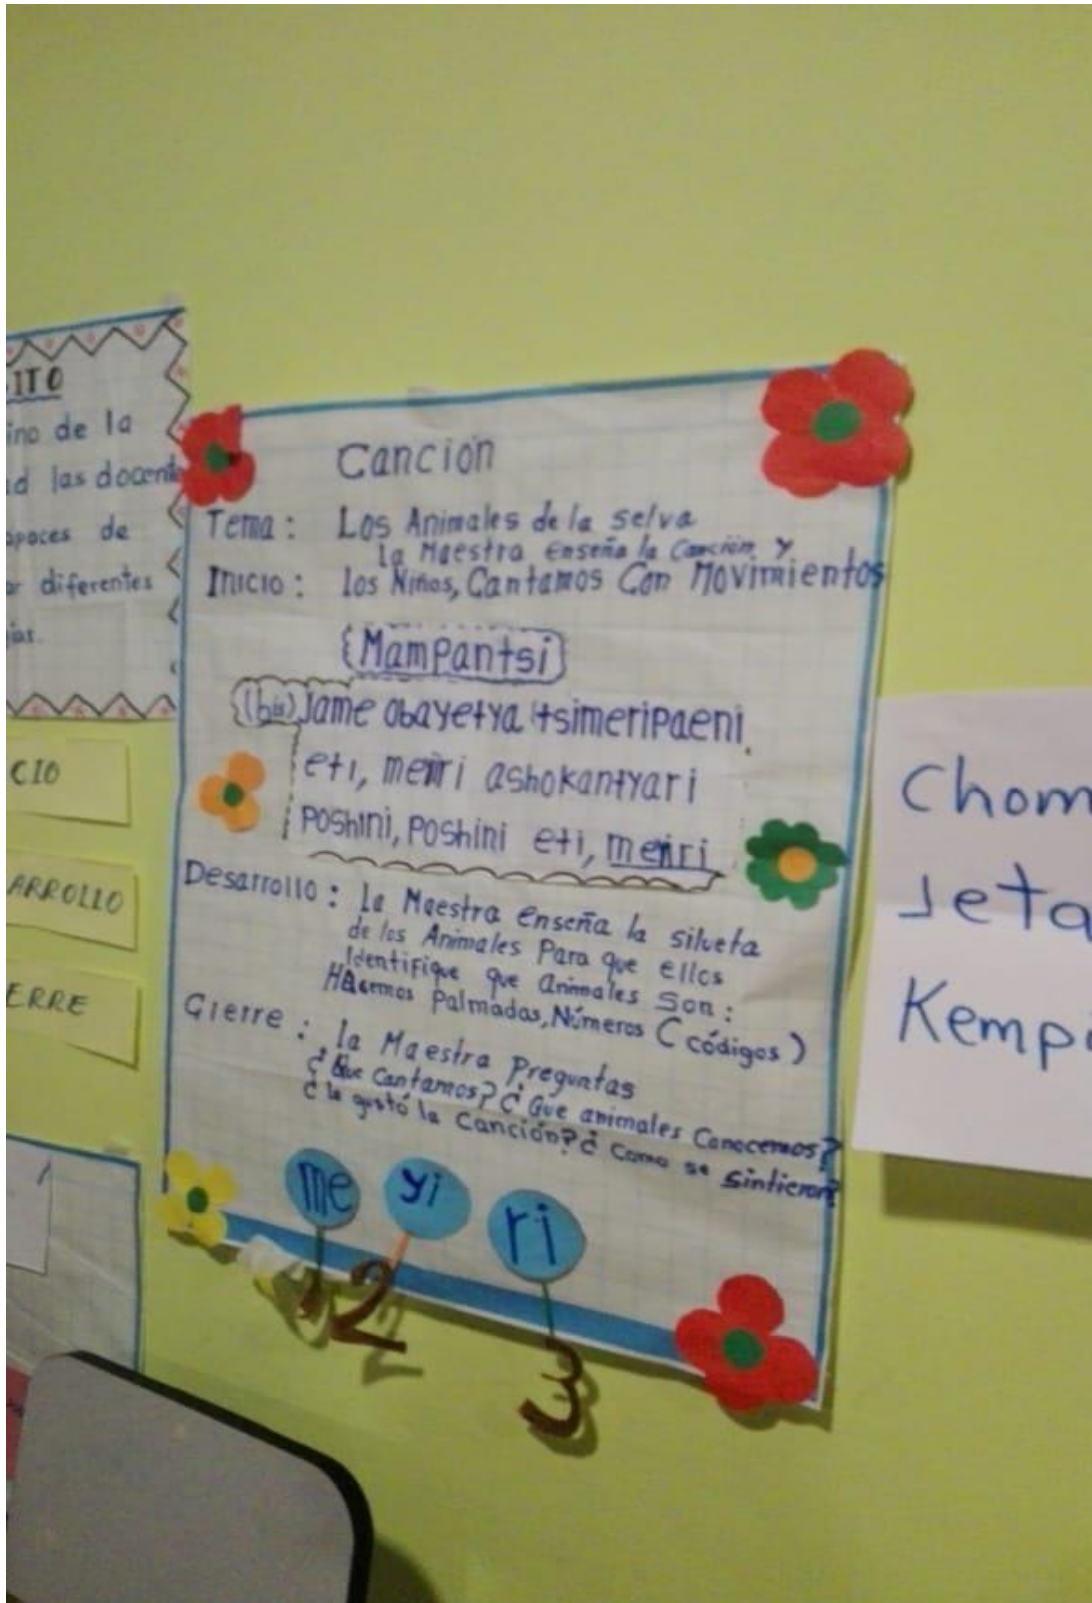 ITO
ino de la
d las docent
apaces de
ar diferentes
CIO
ARROLLO
ERRE
Canción
Tema: Los Animales de la selva
la Maestra enseña la Canción y
Inicio: los Niños, Cantamos Con Movimientos
Mampantsi
(bis) Jame obayetya itsimeripaeni
eti, meiri ashokantyari
Poshini, Poshini eti, meiri
Desarrollo: la Maestra enseña la silueta
de los Animales Para que ellos
Identifique que animales son:
Hacemos Palmadas, Números (códigos)
Cierre: la Maestra Preguntas
¿Que Cantamos? ¿Que animales Conocemos?
¿le gustó la Canción? ¿Como se sintieron?
me yi ri
1 2 3
Chom
Jeta
Kempi